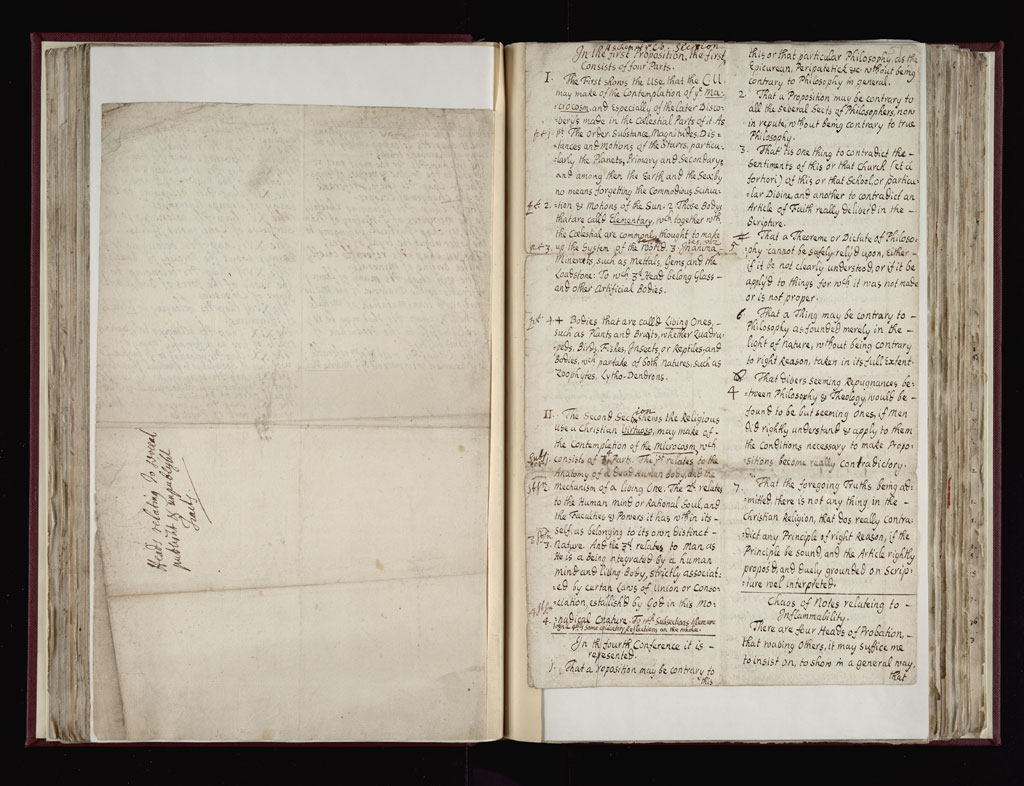 Heads relating to several
publish't & unpublisht
Tracts.
In the first Proposition, the first
Section
Consists of four Parts.
I. The First shows the Use, that the C.V.
may make of the Contemplation of ye Ma-
crocosm, and Especially of the later Disco-
berys made in the Cœlestial Parts of it. As
pt 1. The Order, Substance, Magnitudes, Dis-
tances and Motions of the Starrs, particu-
larly, the Planets, Primary and Secondary;
and among them the Earth and the Sea; by
no means forgetting the Commodious Scitua-
pt 2. tion & Motions of the Sun. 2 Those Bodys
that are call'd Elementary, wch together wth
the Cœlestial are commonly thought to make
pt 3. up the System of the World. 3.
Minerals, such as Mettals, Gems and the
Loadstone: To wch 3d Head belong Glass
and other Artificial Bodies.
pt 4. 4 Bodies that are call'd Living Ones,
such as Plants and Bruits, whether Quadru-
peds, Birds, Fishes, Insects or Reptiles, and
Bodies, wch partake of both Natures, such as
Zoophytes, Lytho-Dendrons.
II. The Second Section shews the Religious
Use a Christian Virtuoso, may make of
the Contemplation of the Microcosm, wch
consists of Parts. The 1st relates to the
Anatomy of a Dead Human Body, and the
Mechanism of a living One. The 2d relates
to the Human Mind or Rational Soul, and
the Faculties & Powers it has wth in its
self, as belonging to its own distinct
3. Nature. And the 3d relates to Man, as
He is a Being integrated by a human
Mind and living Body, strictly associat-
ed by certan Laws of Union or Conso-
ciation, establish'd by God in this Mo-
4. nadical Creature. To wch Subsections there are
some Reflections on the whole.
In the fourth Conference it is
represented.
1. That a roposition may be contrary to
this
this or that particular Philosophy, as the
Epicurean, Peripatetick &c without being
contrary to Philosophy in general.
2 That a Proposition may be contrary to
all the several Sects of Philosophers, now
in repute, without being contrary to true
Philosophy.
3. That tis one thing to contradict the
Sentiments of this or that Church (et à
fortiori) of this or that School, or particu-
lar Divine, and another to contradict an
Article of Faith really deliver'd in the
Scripture.
5 That a Theoreme or Dictate of Philoso-
phy cannot be safely rely'd upon, either
if it be not clearly understood, or if it be
apply'd to things for wch it was not made
or is not proper.
6 That a Thing may be contrary to
Philosophy as founded merely in the
light of Nature, without being contrary
to right Reason, taken in its full Extent.
4 That divers seeming Repugnances be-
tween Philosophy & Theology, would be
found to be but seeming ones, if Men
did rightly understand & apply to them
the Conditions necessary to make Propo-
sitions become really contradictory.
7. That the foregoing Truths being ad-
mitted, there is not any thing in the
Christian Religion, that dos really contra-
dict any Principle of right Reason, if the
Principle be sound, and the Article rightly
propos'd, and duely grounded on Scrip-
ture wel interpreted.
Chaos of Notes relateing to
Inflammability.
There are four Heads of Probation,
that waving others, it may suffice me
to insist on, to show in a general way,
that